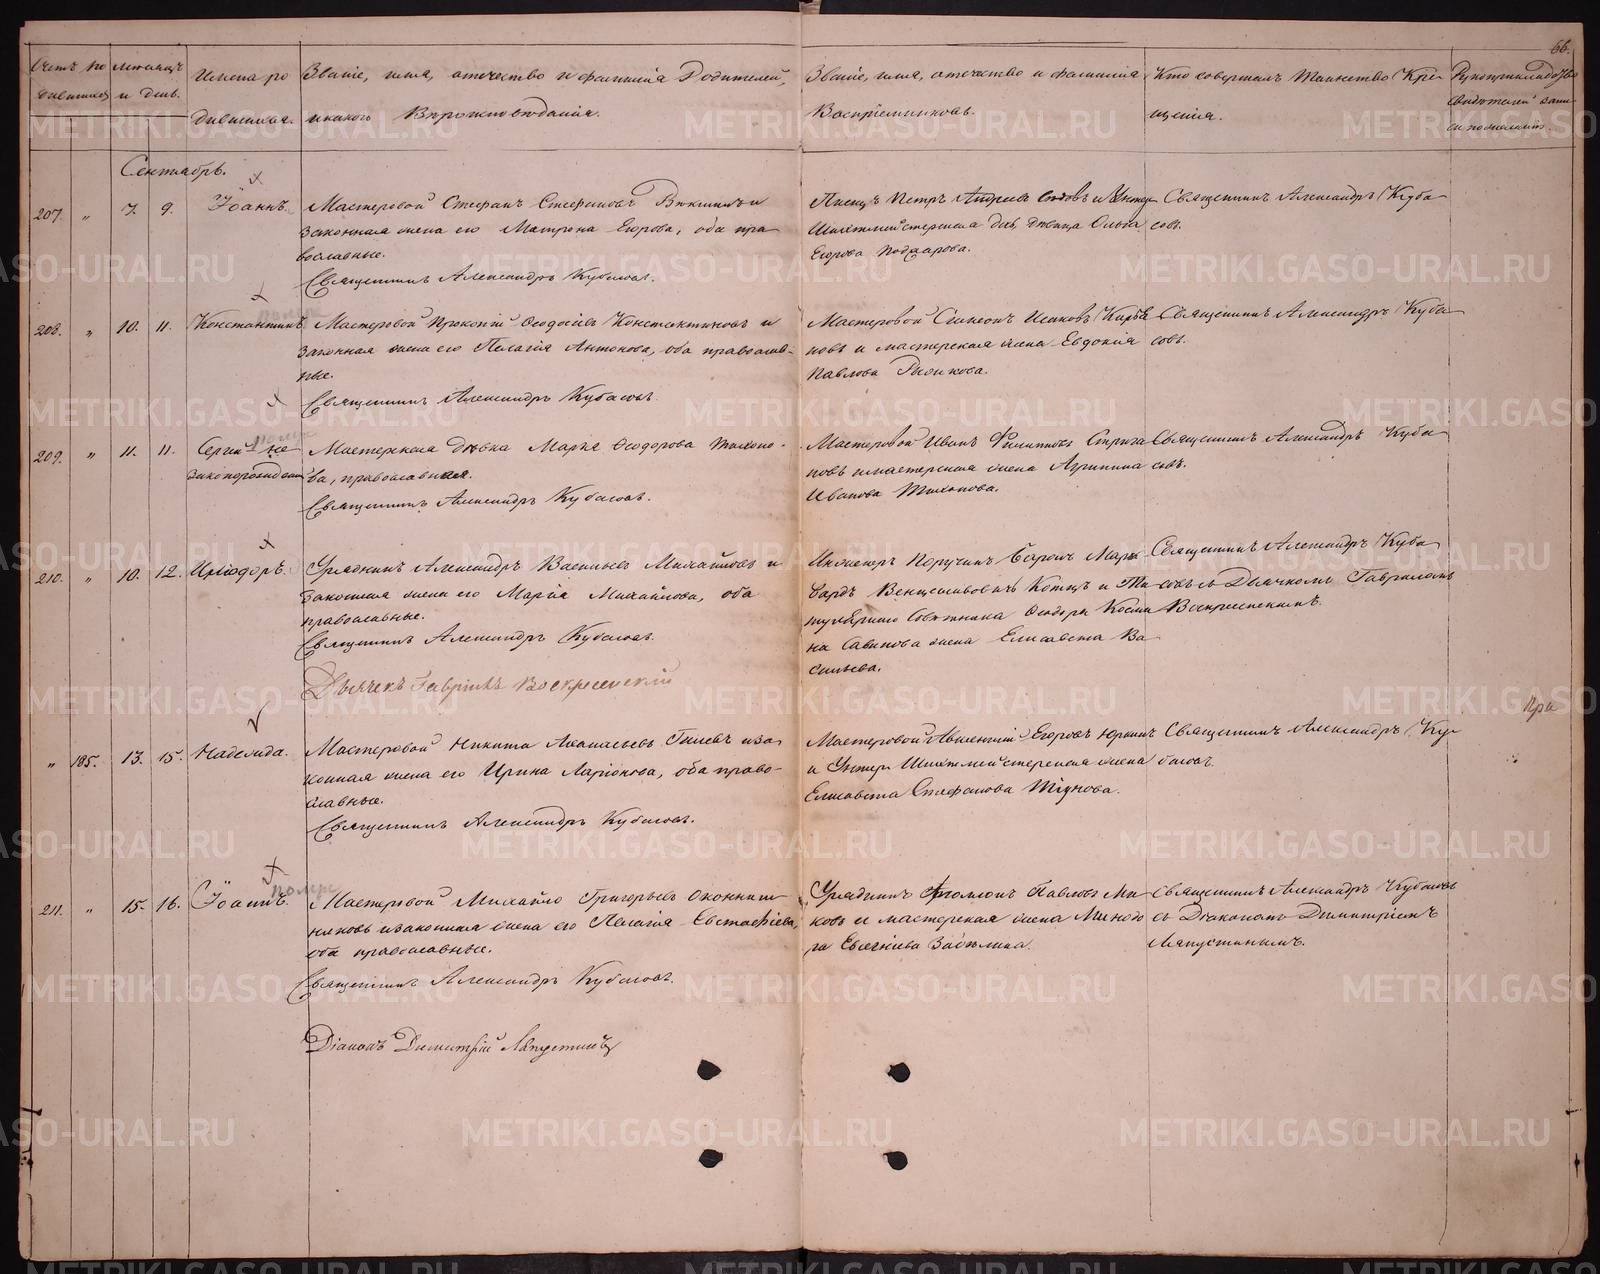 66.
Счетъ ро
дившихся
месяцъ
и день.
Имена ро
дившихся.
Званіе, имя, отечество и фамилія Родителей,
и какого Вѣроисповѣданія.
Званіе, имя, отечество и фамилія
Воспріемниковъ.
Кто совершалъ Таинство Кре-
щенія.
Рукоприкладство
свидѣтелей запи
си по желанію.
Сентябрь.
207. " 7. 9. Іоаннъ.
Мастеровой Стефанъ Стефановъ и
законная жена его Матрона Егорова, оба пра
вославные.
Священникъ Александръ Кубасовъ.
Писецъ Петръ Андреевъ и Унтер
Шихтмейстерская дѣвица Ольга
Егорова
Священникъ Александръ Куба
совъ.
208. " 10. 11. Константинъ.
помре
Мастеровой Прокопій Ѳеодосіевъ Константиновъ и
законная жена его Пелагія Антонова, оба православ-
ные.
Священникъ Александръ Кубасовъ.
Мастеровой Симеонъ Исаковъ
новъ и мастерская жена Евдокія
Павлова
Священникъ Александръ Куба
совъ.
209. " 11. 11. Сергій не
законорожденный
помре
Мастерская дѣвка Марѳа Ѳеодорова Тихоно-
ва, православная.
Священникъ Александръ Кубасовъ.
Мастеровой Иванъ Филипповъ Стрига
новъ и мастерская жена Агрипина
Иванова Тихонова.
Священникъ Александръ Куба
совъ.
210. " 10. 12. Иліодоръ.
Урядникъ Александръ Васильевъ Михайловъ и
законная жена его Марія Михайлова, оба
православные.
Священникъ Александръ Кубасовъ.
Дьячекъ Гавріилъ Воскресенскій
Инженеръ Поручикъ Баронъ
Венцеславовичъ Котцъ и Ти
тулярнаго Совѣтника Ѳеодора Косми
на Савинова жена Елисавета Ва
сильева.
Священникъ Александръ Куба
совъ съ Дьячкомъ Гавріиломъ
Воскресенскимъ.
При
" 185. 13. 15. Надежда.
Мастеровой Никита Аѳанасьевъ Гилевъ и за
конная жена его Ирина Ларіонова, оба право-
славные.
Священникъ Александръ Кубасовъ.
Мастеровой Егоровъ
и Унтер Шихтмейстерская жена
Елисавета Стефанова Тіунова.
Священникъ Александръ Ку
басовъ.
211. " 15. 16. Іоаннъ.
помре
Мастеровой Михайло Григорьевъ Оконниш
никовъ и законная жена его Пелагія Евстафіева,
оба православные.
Священникъ Александръ Кубасовъ.
Діаконъ Димитрій Ляпустинъ
Урядникъ Павловъ
ковъ и мастерская жена Минодо
ра Евгеніева Забѣлина.
Священникъ Александръ Кубасовъ
съ Діакономъ Димитріемъ
Ляпустинымъ.
METRIKI.GASO-URAL.RU